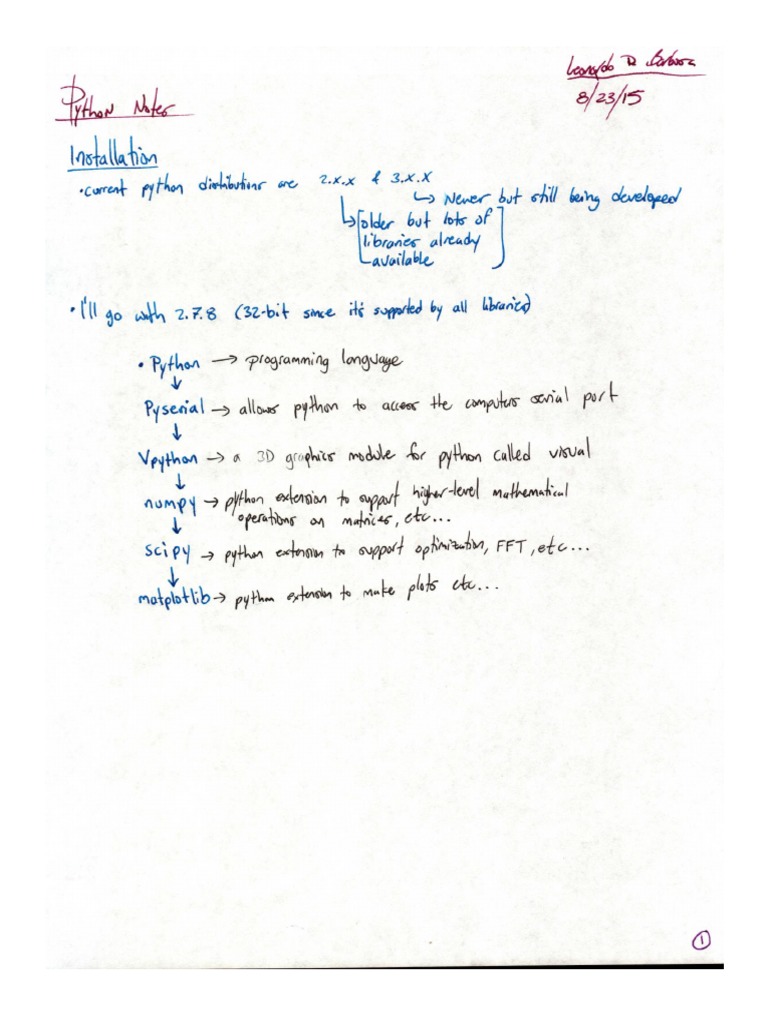 Leonardo D. Barbosa
8/23/15
Python Notes
Installation
• current python distributions are 2.x.x & 3.x.x
↳ Newer but still being developed
↳ [older but lots of
libraries already
available]
• I'll go with 2.7.8 (32-bit since it's supported by all libraries)
• Python → programming language
↓
Pyserial → allows python to access the computers serial port
↓
Vpython → a 3D graphics module for python called visual
↓
numpy → python extension to support higher-level mathematical
operations on matrices, etc...
↓
scipy → python extension to support optimization, FFT, etc...
↓
matplotlib → python extension to make plots etc...
1